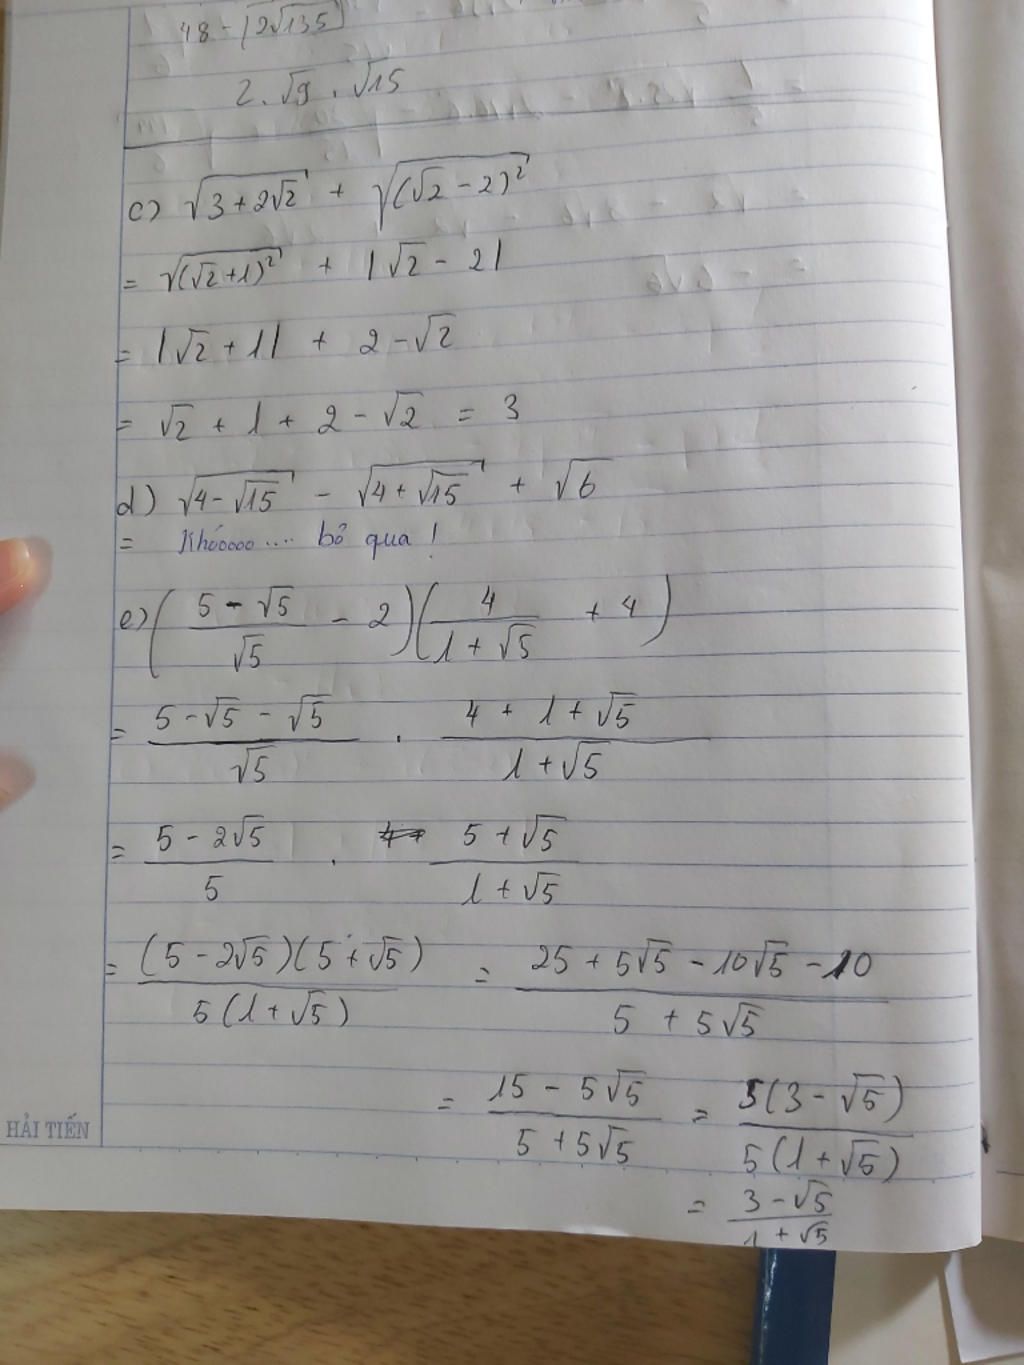 48 - |2√135|
2 . √9 . √15
c) √(3 + 2√2) + √((√2 - 2)²)
= √((√2 + 1)²) + |√2 - 2|
= |√2 + 1| + 2 - √2
= √2 + 1 + 2 - √2 = 3
d) √(4 - √15) - √(4 + √15) + √6
= Khóoooo .... bỏ qua !
e) ((5 - √5)/√5 - 2)(4/(1 + √5) + 4)
= (5 - √5 - √5)/√5 . (4 + 1 + √5)/(1 + √5)
= (5 - 2√5)/5 . (5 + √5)/(1 + √5)
= ((5 - 2√5)(5 + √5))/(5(1 + √5)) = (25 + 5√5 - 10√5 - 10)/(5 + 5√5)
= (15 - 5√5)/(5 + 5√5) = (5(3 - √5))/(5(1 + √5))
HẢI TIẾN
= (3 - √5)/(1 + √5)